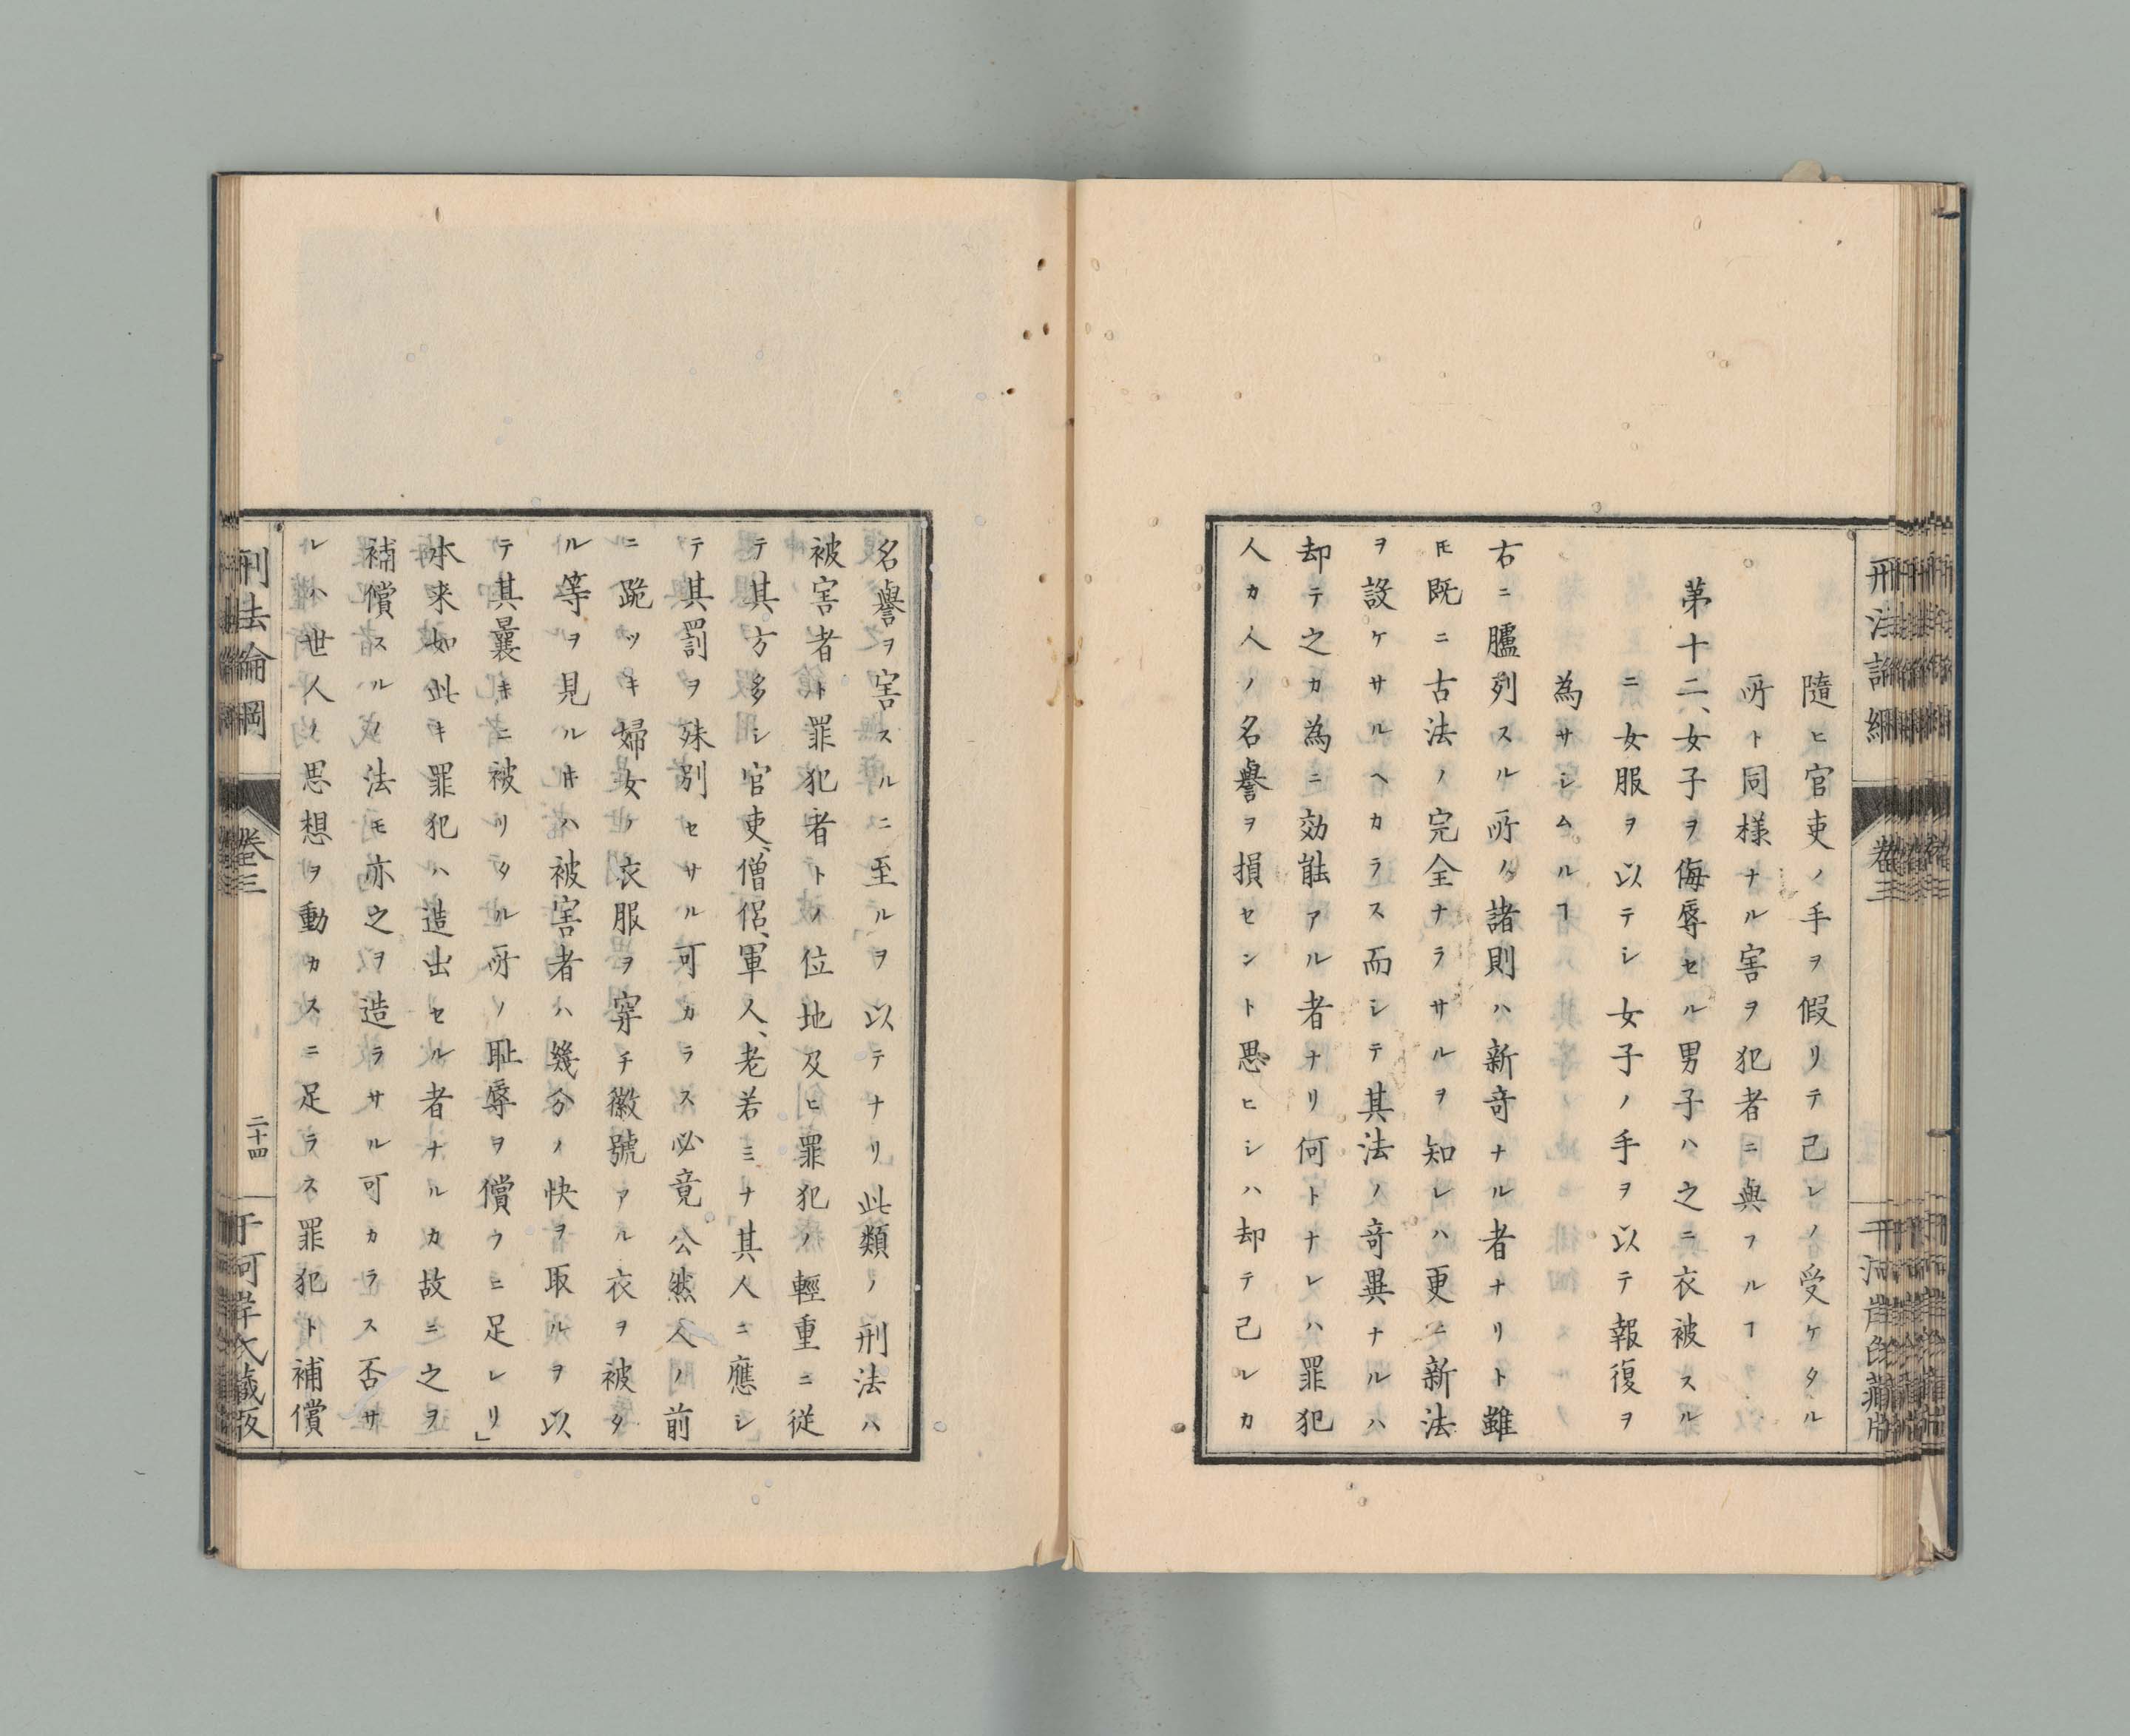 隨ヒ官吏ノ手ヲ假リテ己レノ受ケタル
所ト同様ナル害ヲ犯者ニ與フルヿ
第十二、女子ヲ侮辱セル男子ハ之ニ衣被スル
ニ女服ヲ以テシ女子ノ手ヲ以テ報復ヲ
為サシムルヿ
右ニ臚列スル所ノ諸則ハ新奇ナル者ナリト雖
モ既ニ古法ノ完全ナラサルヲ知レハ更ニ新法
ヲ設ケサルヘカラス而シテ其法ノ奇異ナルハ
却テ之カ為ニ効能アル者ナリ何トナレハ罪犯
人カ人ノ名譽ヲ損セント思ヒシハ却テ己レカ
名譽ヲ害スルニ至ルヲ以テナリ此類ノ刑法ハ
被害者ト罪犯者トノ位地及ヒ罪犯ノ輕重ニ從
テ其方多シ官吏、僧侶、軍人、老若ミナ其人ニ應シ
テ其罰ヲ殊別セサル可カラス必竟公然人ノ前
ニ跪ツキ婦女ノ衣服ヲ穿チ徽號アル衣ヲ被タ
ル等ヲ見ル𪜈ハ被害者ハ幾分ノ快ヲ取ルヲ以
テ其曩キニ被リタル所ノ耻辱ヲ償ウニ足レリ」
本来如此キ罪犯ハ造出セル者ナルカ故ニ之ヲ
補償スルノ法モ亦之ヲ造ラサル可カラス否サ
レハ世人ノ思想ヲ動カスニ足ラス罪犯ト補償
刑法論綱
卷三
二十四
于河岸氏藏版